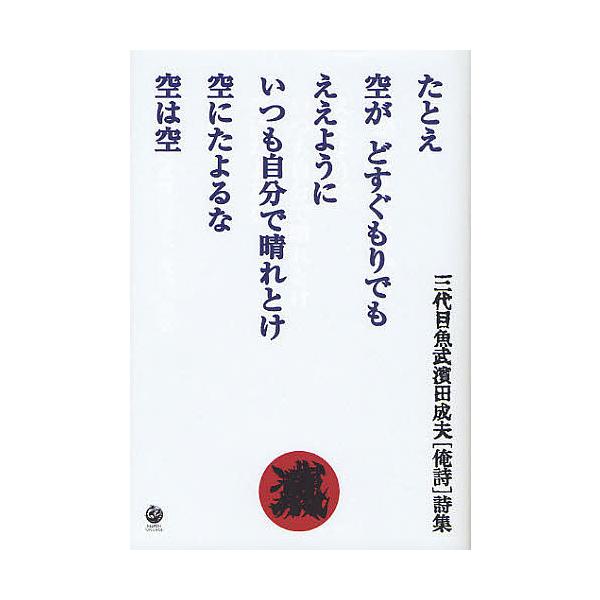 たとえ
空が どすぐもりでも
ええように
いつも自分で晴れとけ
空にたよるな
空は空
三代目魚武濱田成夫[俺詩]詩集